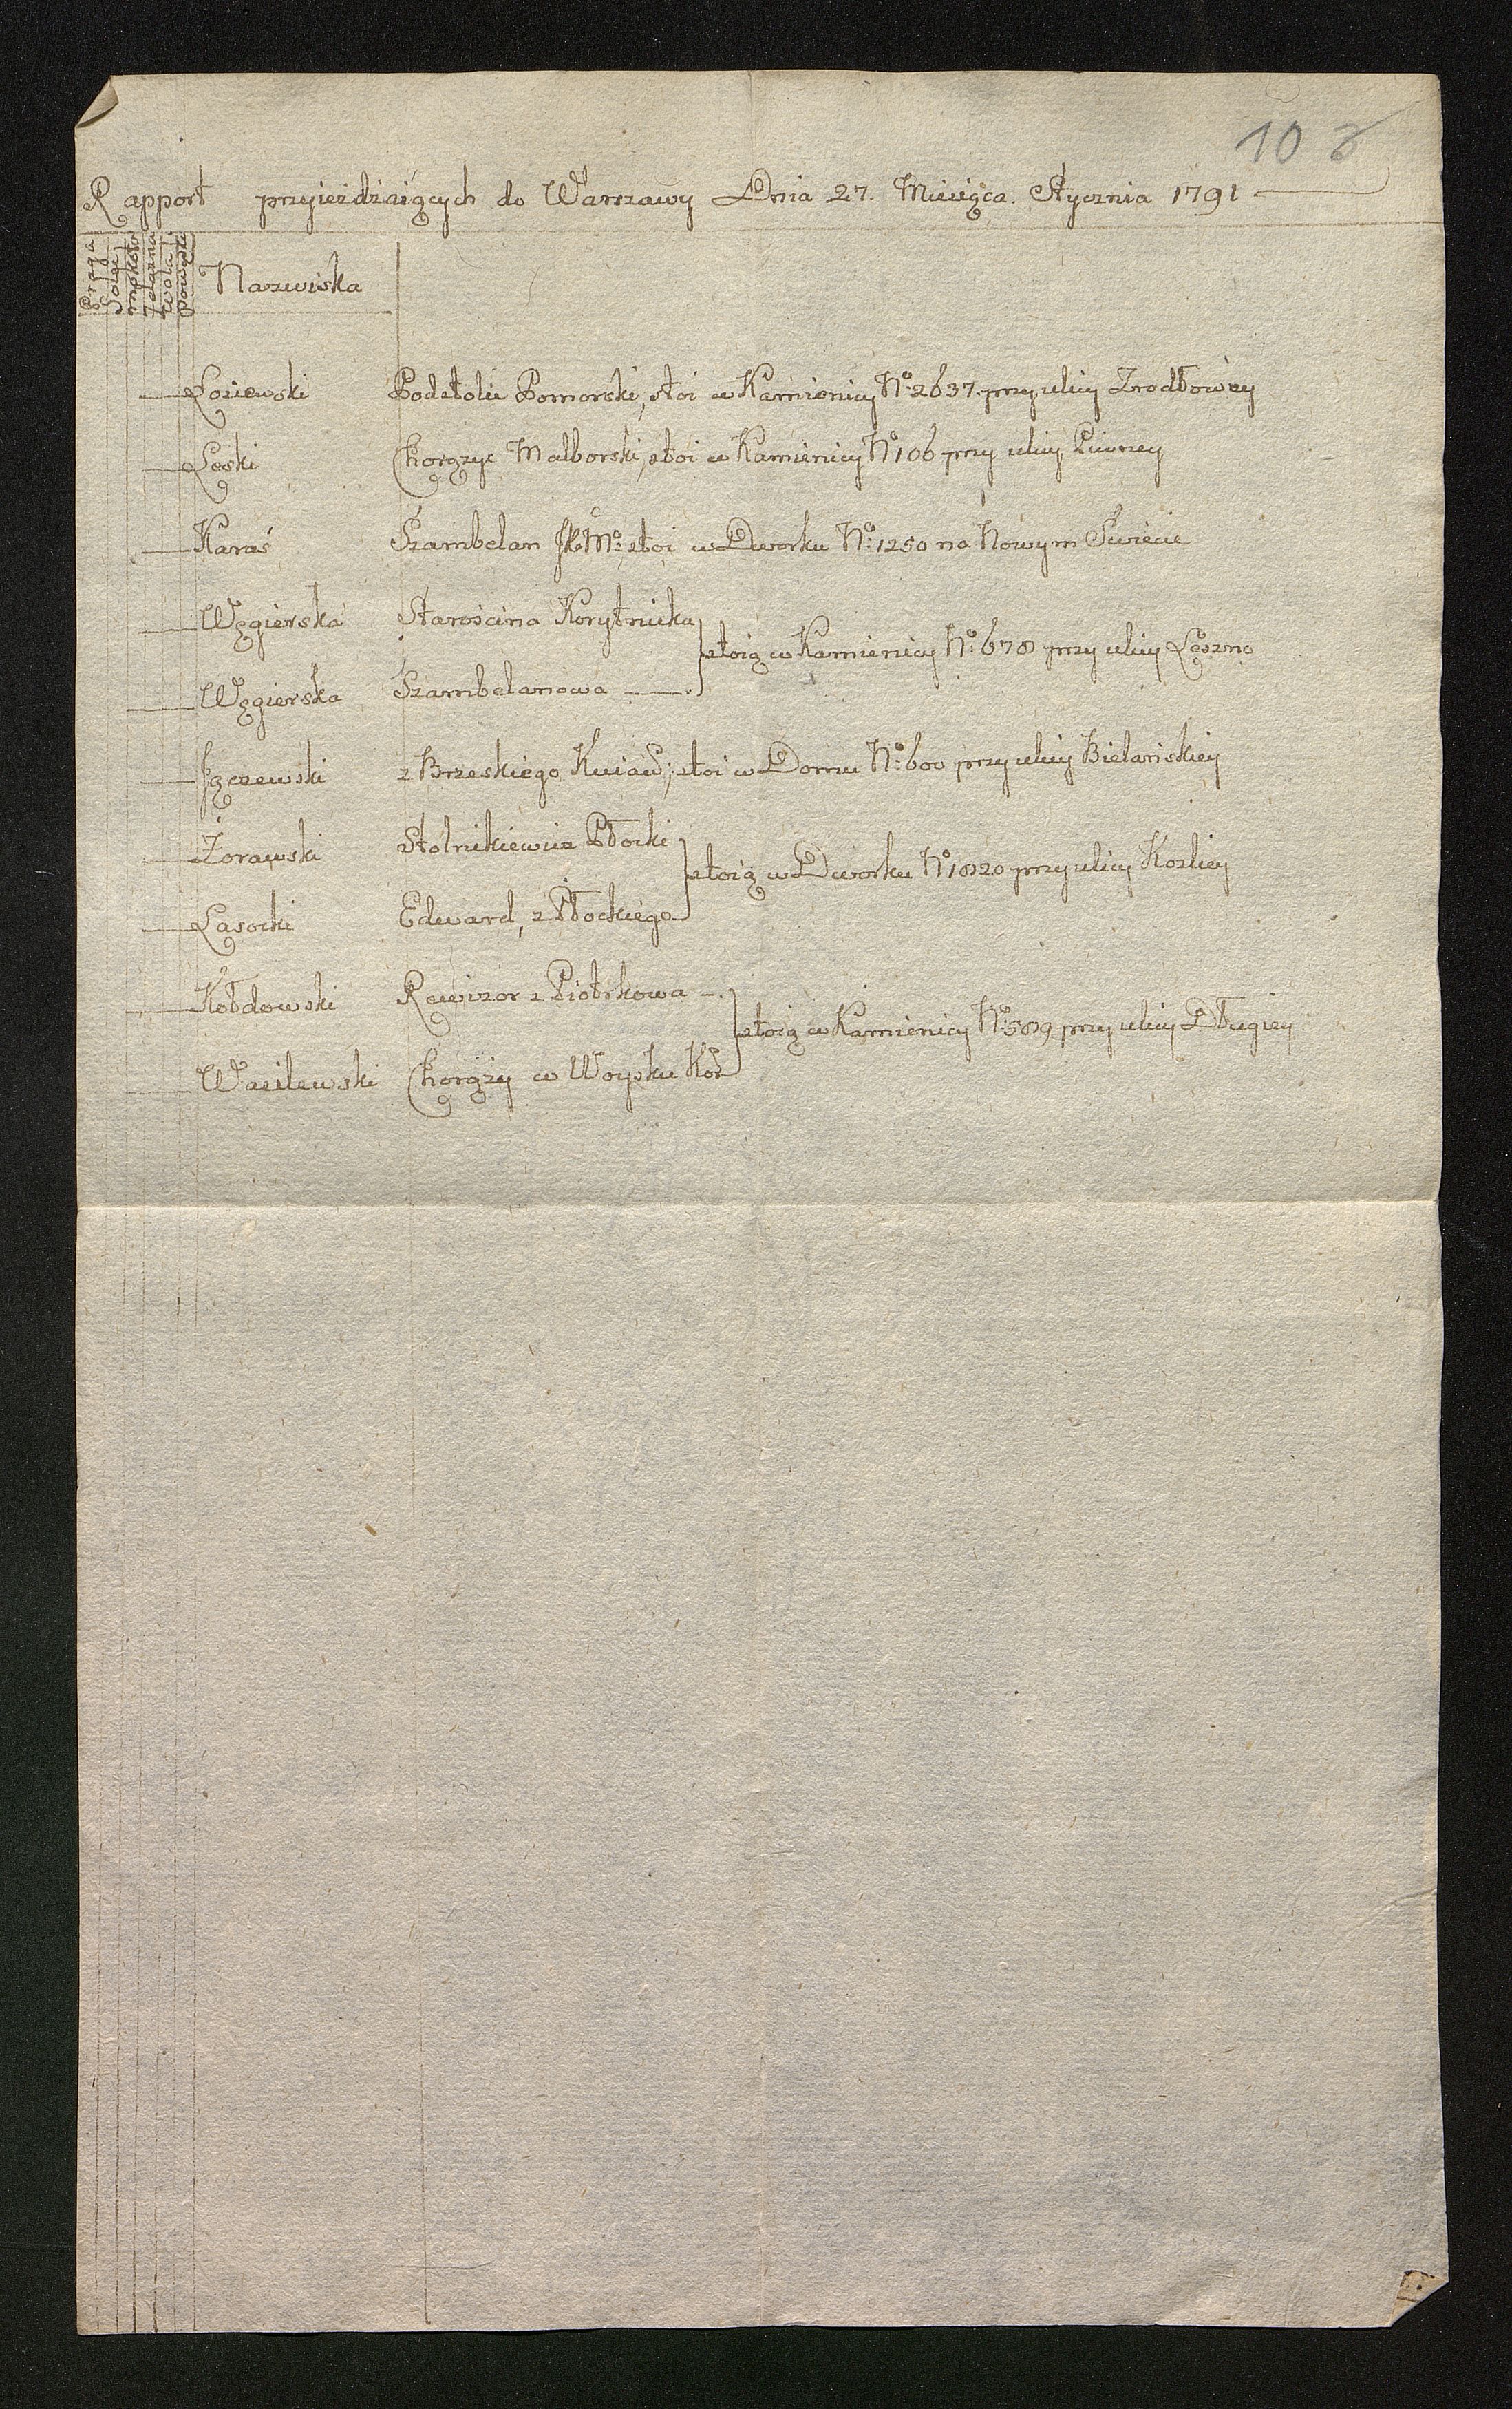 10
Rapport przyieżdżaiących do Warszawy Dnia 27. Miesiąca. Stycznia 1791
Praga
Solec
Mokotow
Żelazna
Wola
Powązki
Nazwiska
Łoziewski Podstolic Pomorski, stoi w Kamienicy No: 2637. przy ulicy Zrodłowey
Łęski Chorązyc Malborski, stoi w Kamienicy No 106 przy ulicy Piwney
Karaś Szambelan JKMci: stoi w Dworku No: 1250 na Nowym Świecie
Węgierska Starościna Korytnicka
stoią w Kamienicy No: 678 przy ulicy Leszno
Węgierska Szambelanowa
Jączewski z Brzeskiego Kuiaw:, stoi w Domu No: 600 przy ulicy Bielańskiey
Żorawski Stolnikiewicz Płocki
stoią w Dworku No 1820 przy ulicy Kozley
Lasocki Edward, z Płockiego
Kołdowski Rewizor z Piotrkowa
stoią w Kamienicy No: 589 przy ulicy Długiey
Wasilewski Chorąży w Woysku Kor